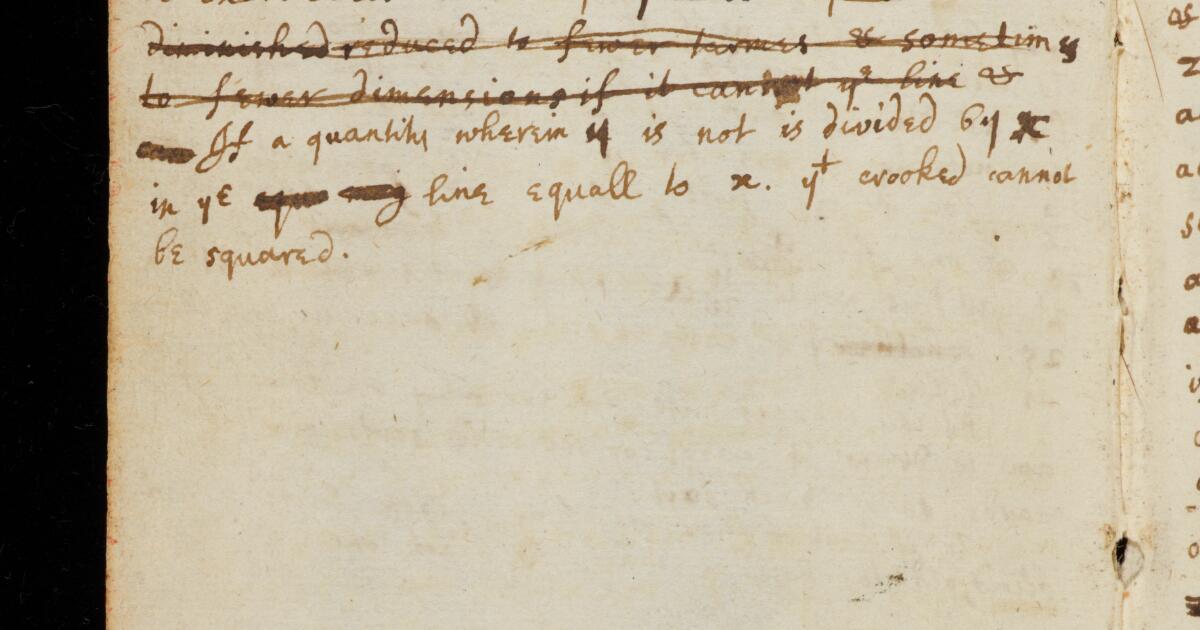 diminished reduced to fewer termes & sometimes
to fewer dimensions if it cannot yᵉ line &
If a quantity wherein y is not is divided by x
in yᵉ line equall to x. yᵗ crooked cannot
be squared.